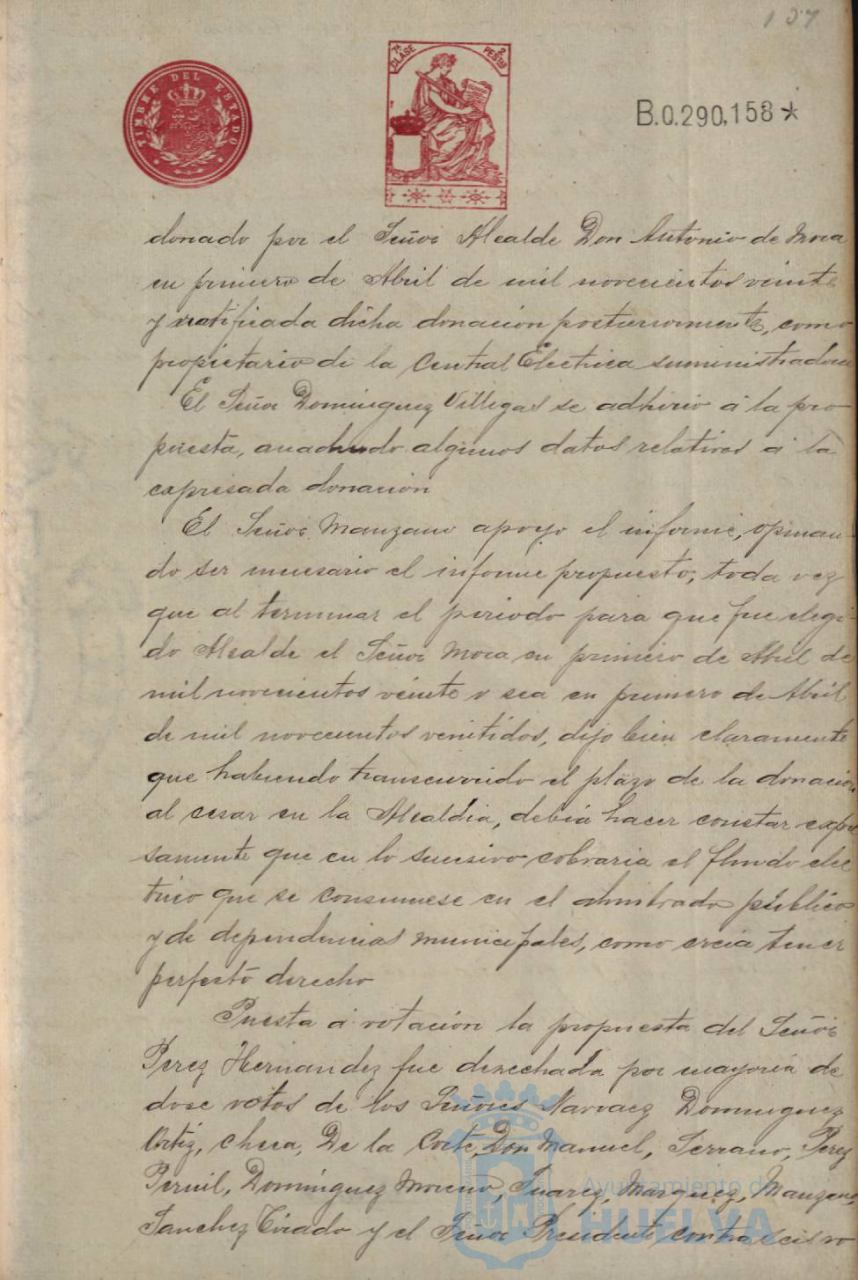 137
TIMBRE DEL ESTADO
7ª CLASE 2 PESETAS
B.0.290,158*
donado por el Señor Alcalde Don Antonio de Mora
en primero de Abril de mil novecientos veinte
y ratificada dicha donación posteriormente, como
propietario de la Central Electrica suministradora
El Señor Dominguez Villegas se adhirió á la pro
puesta, anadiendo algunos datos relativos á la
expresada donación
El Señor Manzano apoyo el informe, opinan-
do ser necesario el informe propuesto, toda vez
que al terminar el periodo para que fue elegi-
do Alcalde el Señor Mora en primero de Abril de
mil novecientos veinte o sea en primero de Abril
de mil novecientos veintidos, dijo bien claramente
que habiendo transcurrido el plazo de la donación
al cesar en la Alcaldia, debia hacer constar expre
samente que en lo sucesivo cobraria el fluido elec
trico que se consumiese en el alumbrado público
y de dependencias municipales, como creia tener
perfecto derecho
Puesta á votación la propuesta del Señor
Perez Hernandez fue desechada por mayoria de
doce votos de los Señores Narvaez Dominguez
Ortiz, Checa, De la Corte, Don Manuel, Serrano, Perez
Pernil, Dominguez Moreno, Suarez Marquez, Manzano,
Sanchez Tirado y el Señor Presidente contra seis vo
Ayuntamiento de
HUELVA